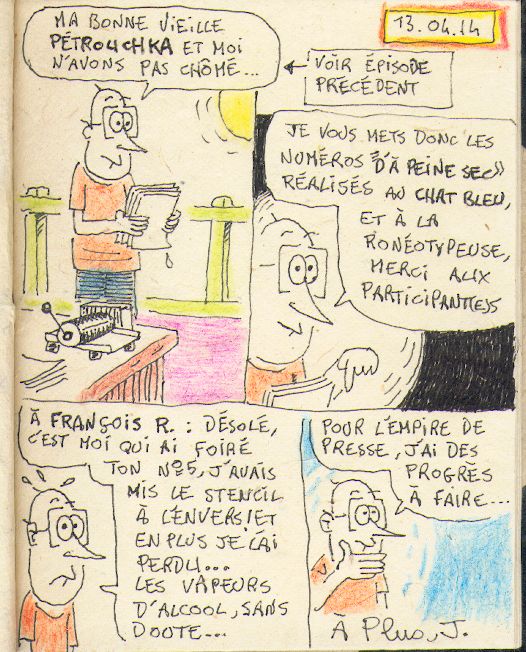 MA BONNE VIEILLE
PÉTROUCHKA ET MOI
N'AVONS PAS CHÔMÉ...
13.04.14
VOIR ÉPISODE
PRÉCÉDENT
JE VOUS METS DONC LES
NUMÉROS "D'À PEINE SEC"
RÉALISÉS AU CHAT BLEU,
ET À LA
RONÉOTYPEUSE,
MERCI AUX
PARTICIPANT(E)S
À FRANÇOIS R. : DÉSOLÉ,
C'EST MOI QUI AI FOIRÉ
TON N°5, J'AVAIS
MIS LE STENCIL
À L'ENVERS! ET
EN PLUS JE L'AI
PERDU...
LES VAPEURS
D'ALCOOL, SANS
DOUTE...
POUR L'EMPIRE DE
PRESSE, J'AI DES
PROGRÈS
À FAIRE...
À Plus, J.